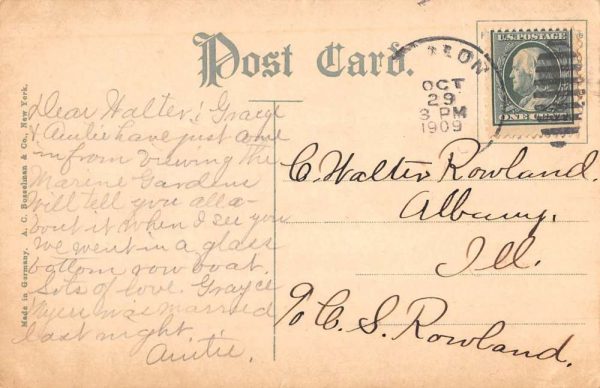 Post Card.
U.S. POSTAGE
ONE CENT
OCT
29
3 PM
1909
Made in Germany. A. C. Bosselman & Co., New York.
Dear Walter; Grayce
& Auntie have just come
in from viewing the
Marine Gardens
Will tell you all a-
bout it when I see you
we went in a glass
bottom row boat.
Lots of love. Grayce
was married
last night.
Auntie.
C. Walter Rowland.
Albany,
Ill.
c/o C. S. Rowland.